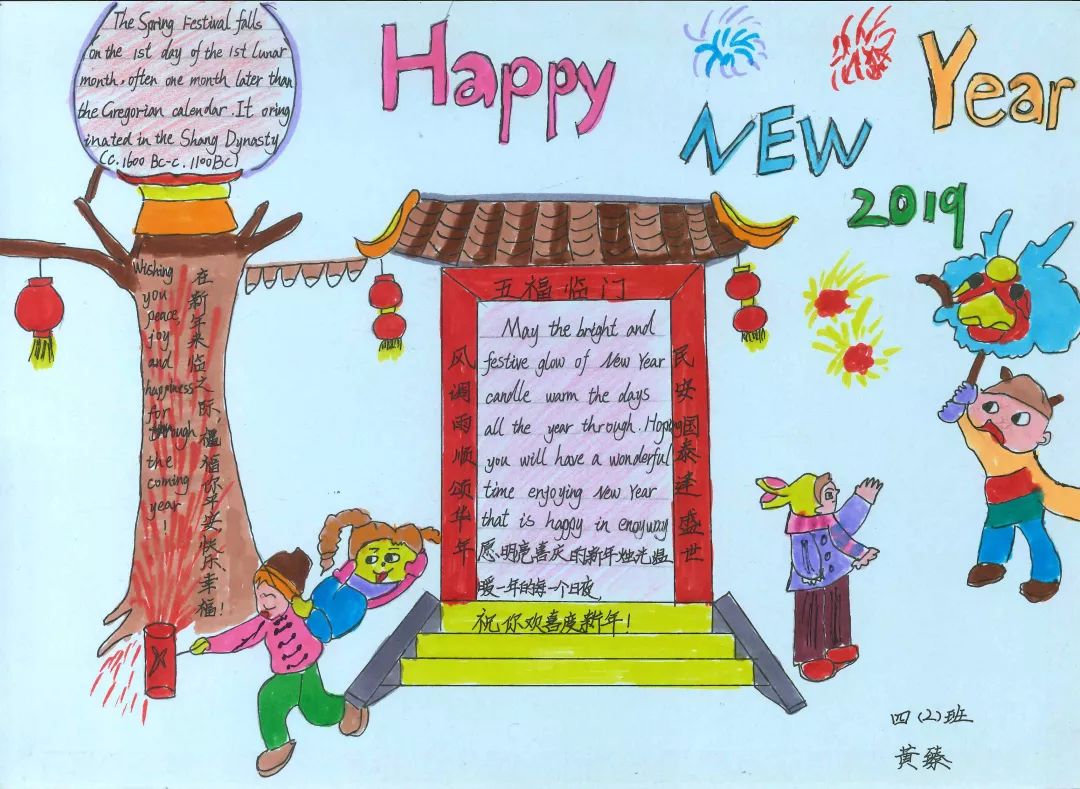 The Spring Festival falls
on the 1st day of the 1st lunar
month, often one month later than
the Gregorian calendar. It oring
inated in the Shang Dynasty
(c.1600 BC-c.1100BC)
Happy
NEW
Year
2019
Wishing
you
peace,
joy
and
happiness
for
through
the
coming
year
!
在新年来临之际,祝福你平安、快乐、幸福!
五福临门
风调雨顺颂华年
May the bright and
festive glow of New Year
candle warm the days
all the year through. Hoping
you will have a wonderful
time enjoying New Year
that is happy in
愿明亮喜庆的新年烛光温
暖一年的每一个日夜,
祝你欢喜度新年!
民安国泰建盛世
四(2)班
黄臻